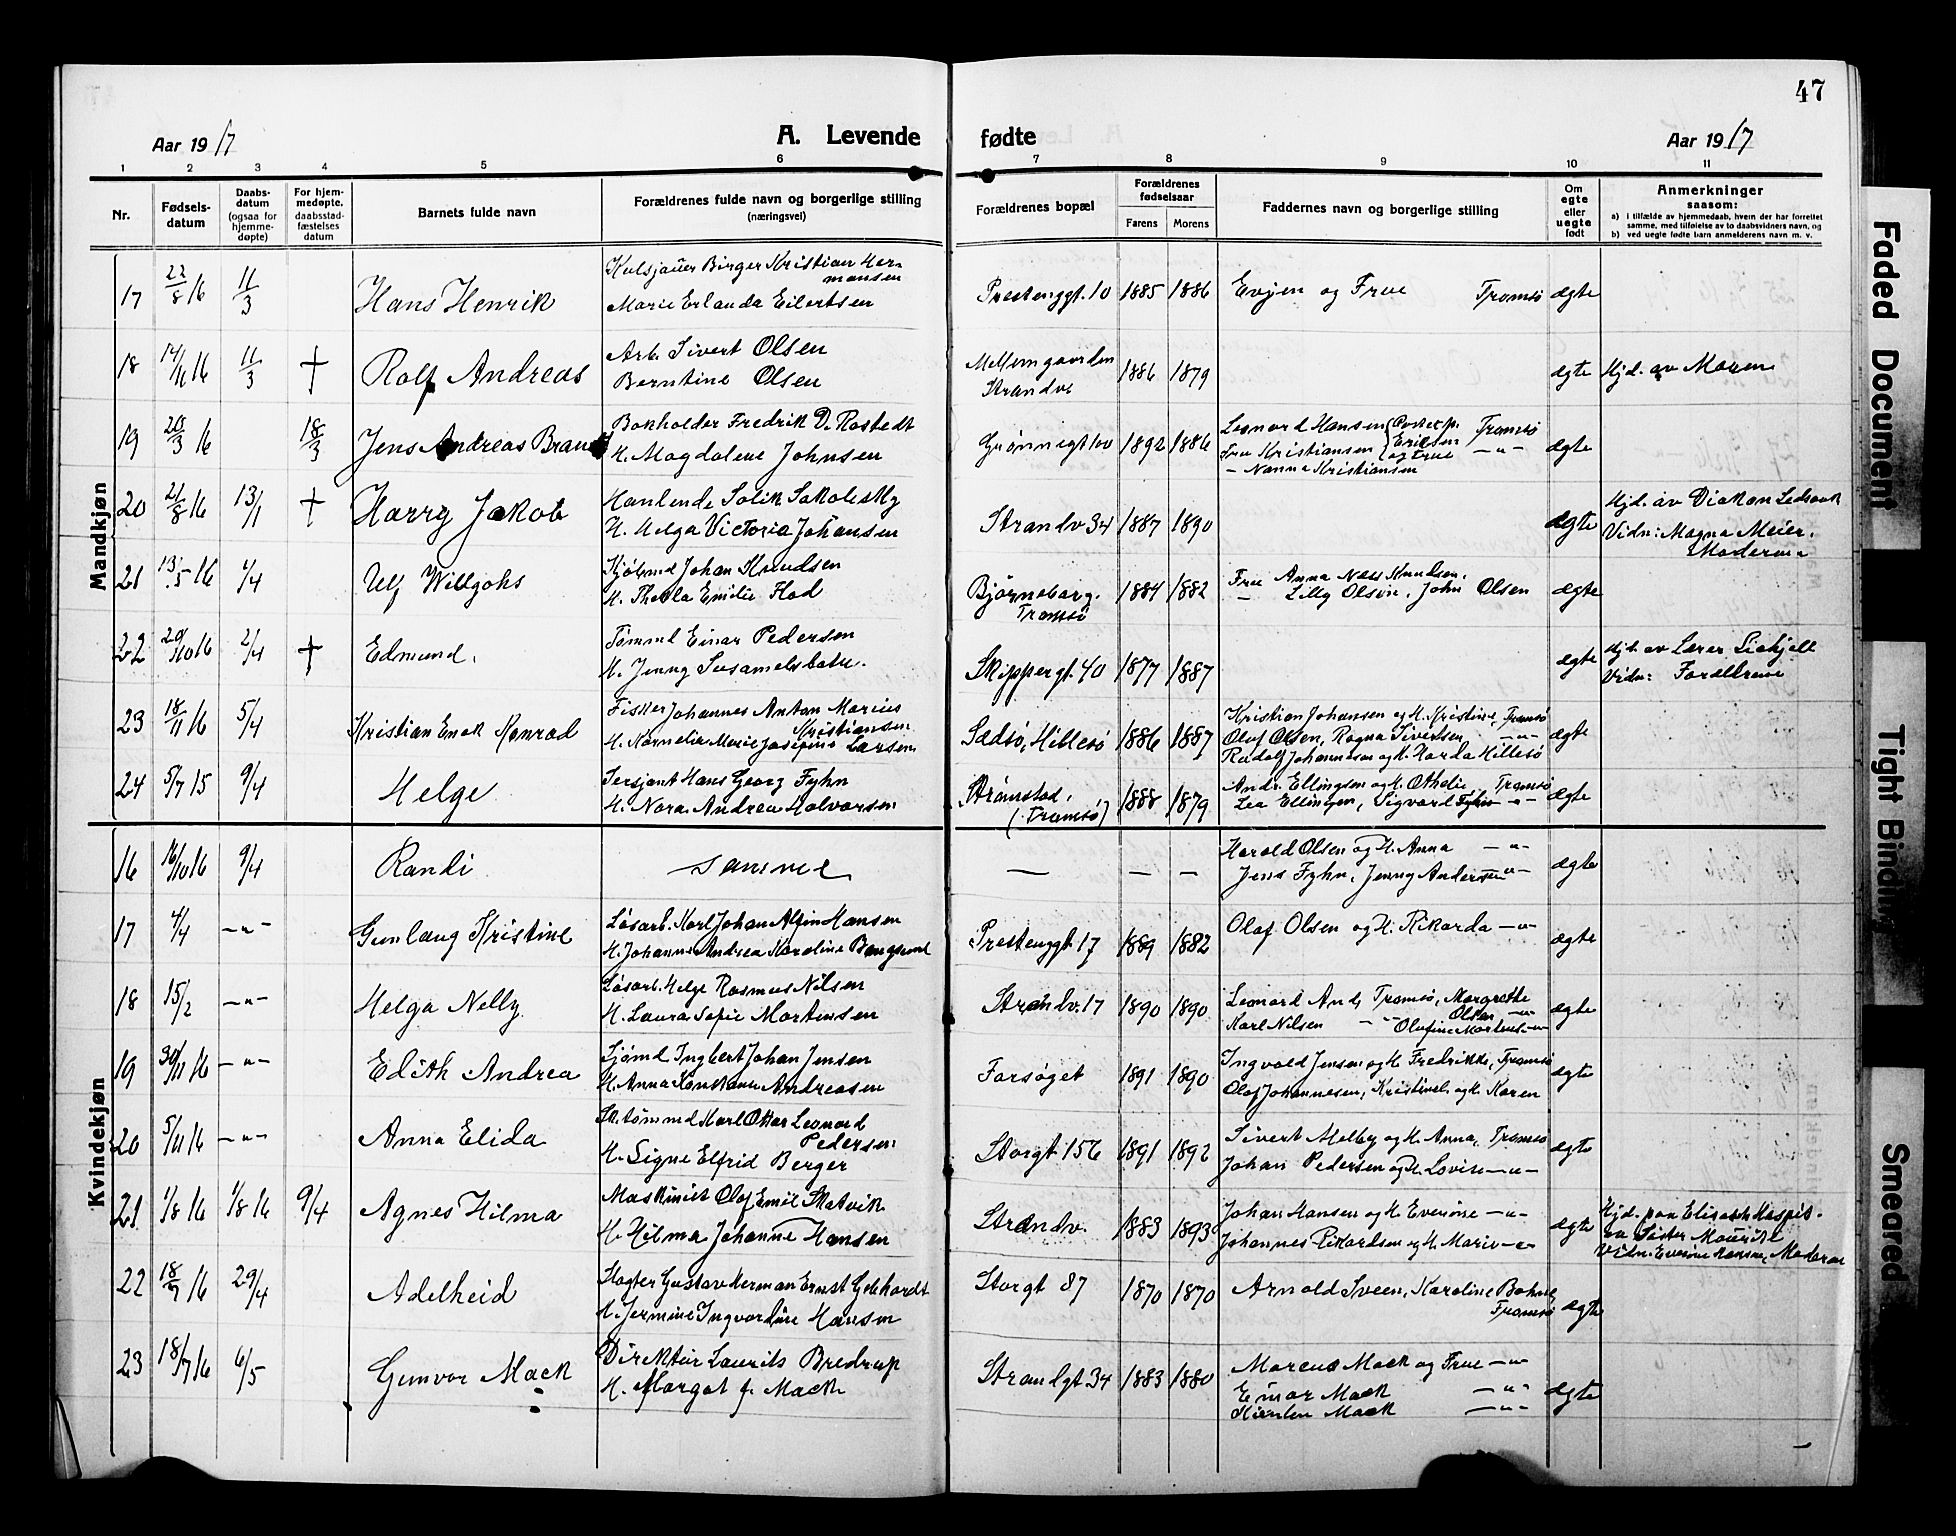 47
Aar 1917 A. Levende fødte Aar 1917
1 2 3 4 5 6 7 8 9 10 11
Nr. Fødsels-datum Daabs-datum (ogsaa for hjemme-døpte) For hjem-medøpte. daabsstad-fæstelses datum Barnets fulde navn Forældrenes fulde navn og borgerlige stilling (næringsvei) Forældrenes bopæl Forældrenes fødselsaar Farens Morens Faddernes navn og borgerlige stilling Om egte eller uegte født Anmerkninger saasom: a) i tilfælde av hjemmedaab, hvem der har forrettet samme, med tilføielse av to daabsvidners navn, og b) ved uegte fødte barn anmelderens navn m. v.
Mandkjøn
17 22/8 16 11/3 Hans Henrik Kulsjauer Birger Kristian Her-
mansen
Marie Erlanda Eilertsen Prestenggt. 10 1885 1886 Evjen og Frue Tromsø ægte
18 14/11 16 11/3 † Rolf Andreas Arb. Sivert Olsen
Berntine Olsen Mellemgaarden
Strandv. 1886 1879 ægte Hjd. av Moren
19 20/3 16 18/3 Jens Andreas Brandt Bokholder Fredrik D. Rostedt
H. Magdalene Johnsen Grønnegt 100 1892 1886 Leonard Hansen Postexp. Tromsø
Fru Kristiansen Eriksen og Frue -"-
- Nanna Kristiansen ægte
20 21/8 16 13/1 † Harry Jakob Hanlende Solik Sakolesky
H. Helga Victoria Johansen Strandv 34 1887 1890 ægte Hjd. av Diakon
Vidn: Magna Meier,
Moderen
21 13/5 16 1/4 Ulf Willgohs Kjøbmd Johan Knudsen
H. Thekla Emilie Flod Bjørneborg.
Tromsø 1884 1882 Frue Anna Næss Knudsen.
- Lilly Olsen, John Olsen ægte
22 20/10 16 2/4 † Edmund. Tømmd Einar Pedersen
H. Jenny Susamelsbatre. Skippergt. 40 1877 1887 ægte Hjd. av Lærer
Vidn: Forældrene
23 18/11 16 5/4 Kristian Enok Konrad Fisker Johannes Anton Marius
Kristiansen
H. Kornelia Marie Josefine Larsen Sædsø, Hillesø 1886 1887 Kristian Johansen og H. Kristine, Tromsø
Olaf Olsen, Ragna Sivertsen -"-
Rudolf Johannesen og H. Harda Hillesø ægte
24 5/7 15 9/4 Helge Sersjant Hans Georg Fyhn
H. Nora Andrea Halvorsen Strømstad,
(Tromsø) 1888 1879 Andr. Ellingsen og H. Othelie Tromsø
Lea Ellingsen, Sigvard Fyhn -"- ægte
Kvindekjøn
16 16/10 16 9/4 Randi samme — — — Harald Olsen og H. Anna -"-
Jens Fyhn, Jenny Andersen -"- ægte
17 4/4 -"- Gunlaug Kristine Løsarb. Karl Johan Alfin Hansen
H. Johanne Andrea Karoline Bangsund Prestenggt 17 1889 1882 Olaf Olsen og H. Rikarda -"- ægte
18 15/2 -"- Helga Nelly Løsarb. Helge Rasmus Nilsen
H. Laura Sofie Mortensen Strandv. 17 1890 1890 Leonard Ands Tromsø, Margrethe
Olsen -"-
Karl Nilsen -"- Olufine Mortens. -"- ægte
19 30/11 16 -"- Edith Andrea Sjømd Ingbert Johan Jensen
H. Anna Konstanse Andreasen Forsøget 1891 1890 Ingvald Jensen og H. Fredrikke, Tromsø
Olaf Johannesen, Kristinel. og H. Karen ægte
20 5/11 16 -"- Anna Elida Sk.tømmd Karl Ottar Leonard
Pedersen
H. Signe Elfrid Berger Storgt 156 1891 1892 Sivert Melby og H. Anna, Tromsø
Johan Pedersen og H. Lovise -"- ægte
21. 1/8 16 1/8 16 9/4 Agnes Hilma Maskinist Olaf Emil Skatvik
H. Hilma Johanne Hansen Strandv. 1883 1893 Johan Hansen og H. Everine -"-
Johannes Rikardsen og H. Marie -"- ægte Hjd. paa Elisabeth Hospit.
av Søster Mauritse
Vidn: Everine Hansen, Moderen
22 18/7 16 29/4 Adelheid Slagter Gustav Herman Ernst Gebhardt
H. Jermine Ingvardine Hansen Storgt 87 1870 1870 Arnold Sveen, Karoline Bohne,
Tromsø ægte
23 18/7 16 6/5 Gunvor Mack Direktør Laurits Bredrup
H. Margot f. Mack Strandgt 34 1883 1880 Marcus Mack og Frue -"-
Einar Mack -"-
Kirsten Mack -"- ægte
Faded Document
Tight Binding
Smeared